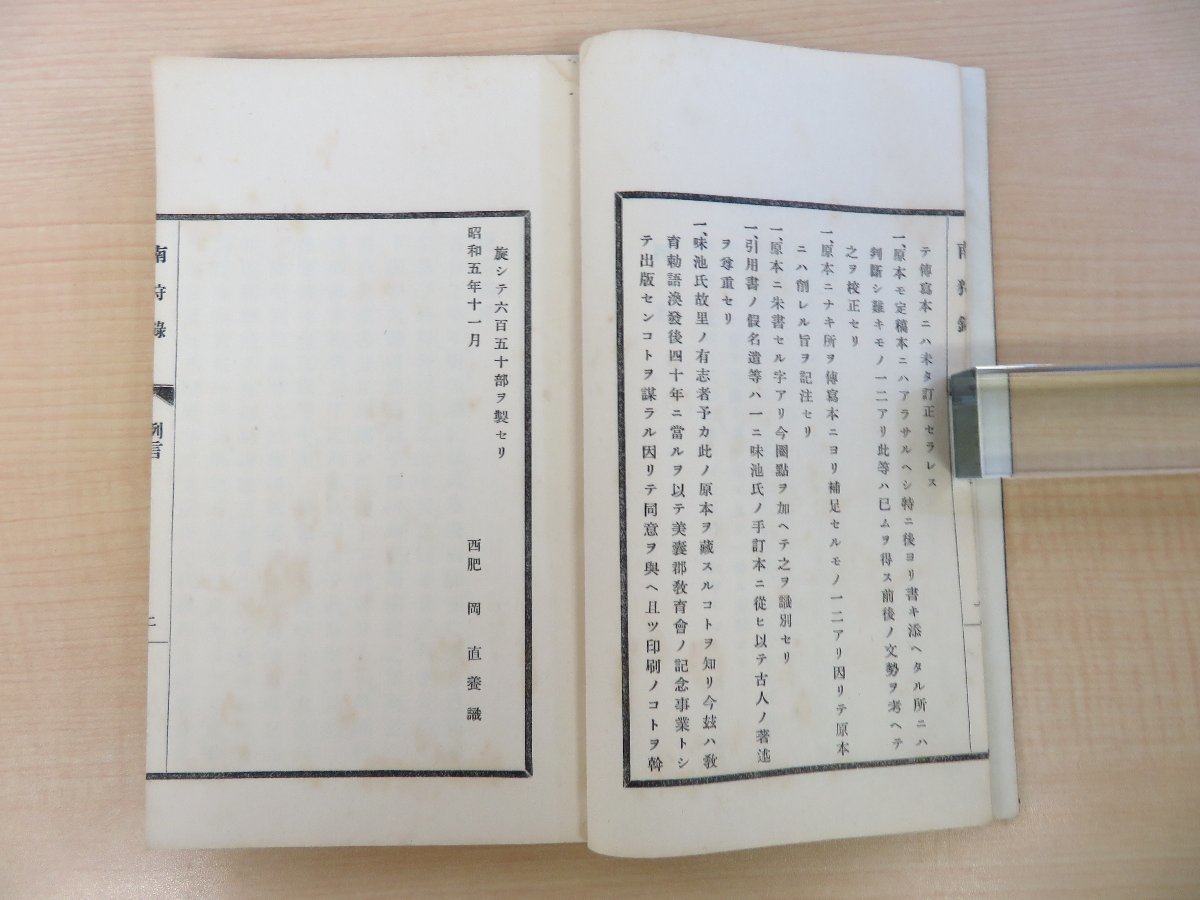 テ傳寫本ニハ未タ訂正セラレス
一、原本モ定稿本ニハアラサルヘシ特ニ後ヨリ書キ添ヘタル所ニハ
判斷シ難キモノ一二アリ此等ハ已ムヲ得ス前後ノ文勢ヲ考ヘテ
之ヲ校正セリ
一、原本ニナキ所ヲ傳寫本ニヨリ補足セルモノ一二アリ因リテ原本
ニハ削レル旨ヲ記注セリ
一、原本ニ朱書セル字アリ今圈點ヲ加ヘテ之ヲ識別セリ
一、引用書ノ假名遣等ハ一ニ味池氏ノ手訂本ニ從ヒ以テ古人ノ著述
ヲ尊重セリ
一、味池氏故里ノ有志者予カ此ノ原本ヲ藏スルコトヲ知リ今玆ハ敎
育勅語渙發後四十年ニ當ルヲ以テ美囊郡敎育會ノ記念事業トシ
テ出版センコトヲ謀ラル因リテ同意ヲ與ヘ且ツ印刷ノコトヲ斡
旋シテ六百五十部ヲ製セリ
昭和五年十一月
西肥 岡直養識
南狩錄 例言 二